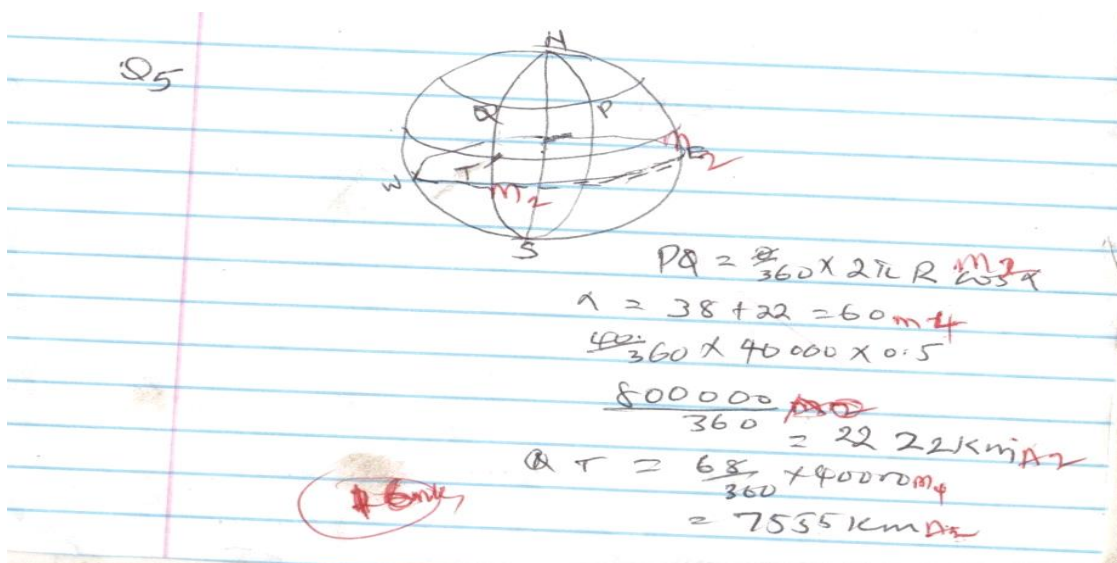 Q5
N
Q P
T
W M2 E M2
S
PQ = θ/360 × 2π R cosα M2
α = 38 + 22 = 60 M4
40/360 × 40000 × 0.5
800000/360
= 2222km A2
QT = 68/360 × 40000 M4
= 7555km